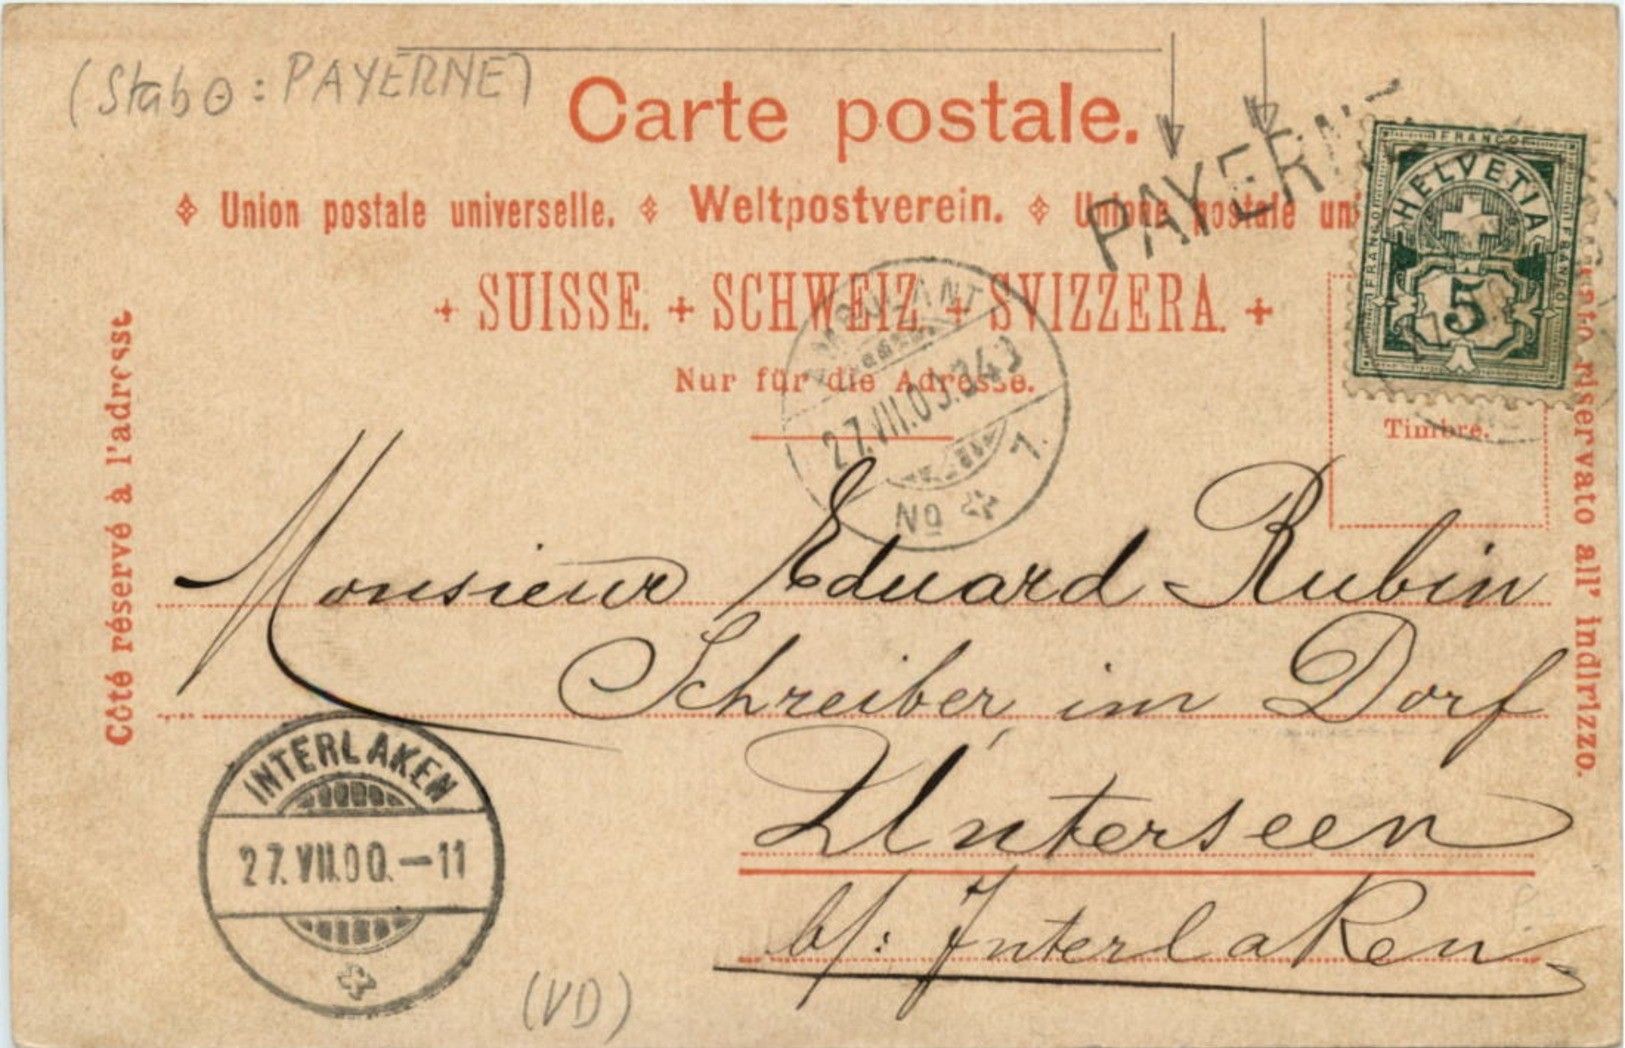 (Stabo: PAYERNE)
Carte postale.
PAYERNE
Union postale universelle. Weltpostverein. Unione postale
SUISSE. + SCHWEIZ + SVIZZERA.
Nur für die Adresse.
FRANCO
FRANCO
HELVETIA
FRANCO
5
Timbre.
AMBULANT
27.VII.00.
No
1.
Côté réservé à l'adresse
riservato all' indirizzo.
Monsieur Eduard Rubin
Schreiber, im Dorf
Unterseen
b/: Interlaken
INTERLAKEN
27.VII.00.-11
(VD)